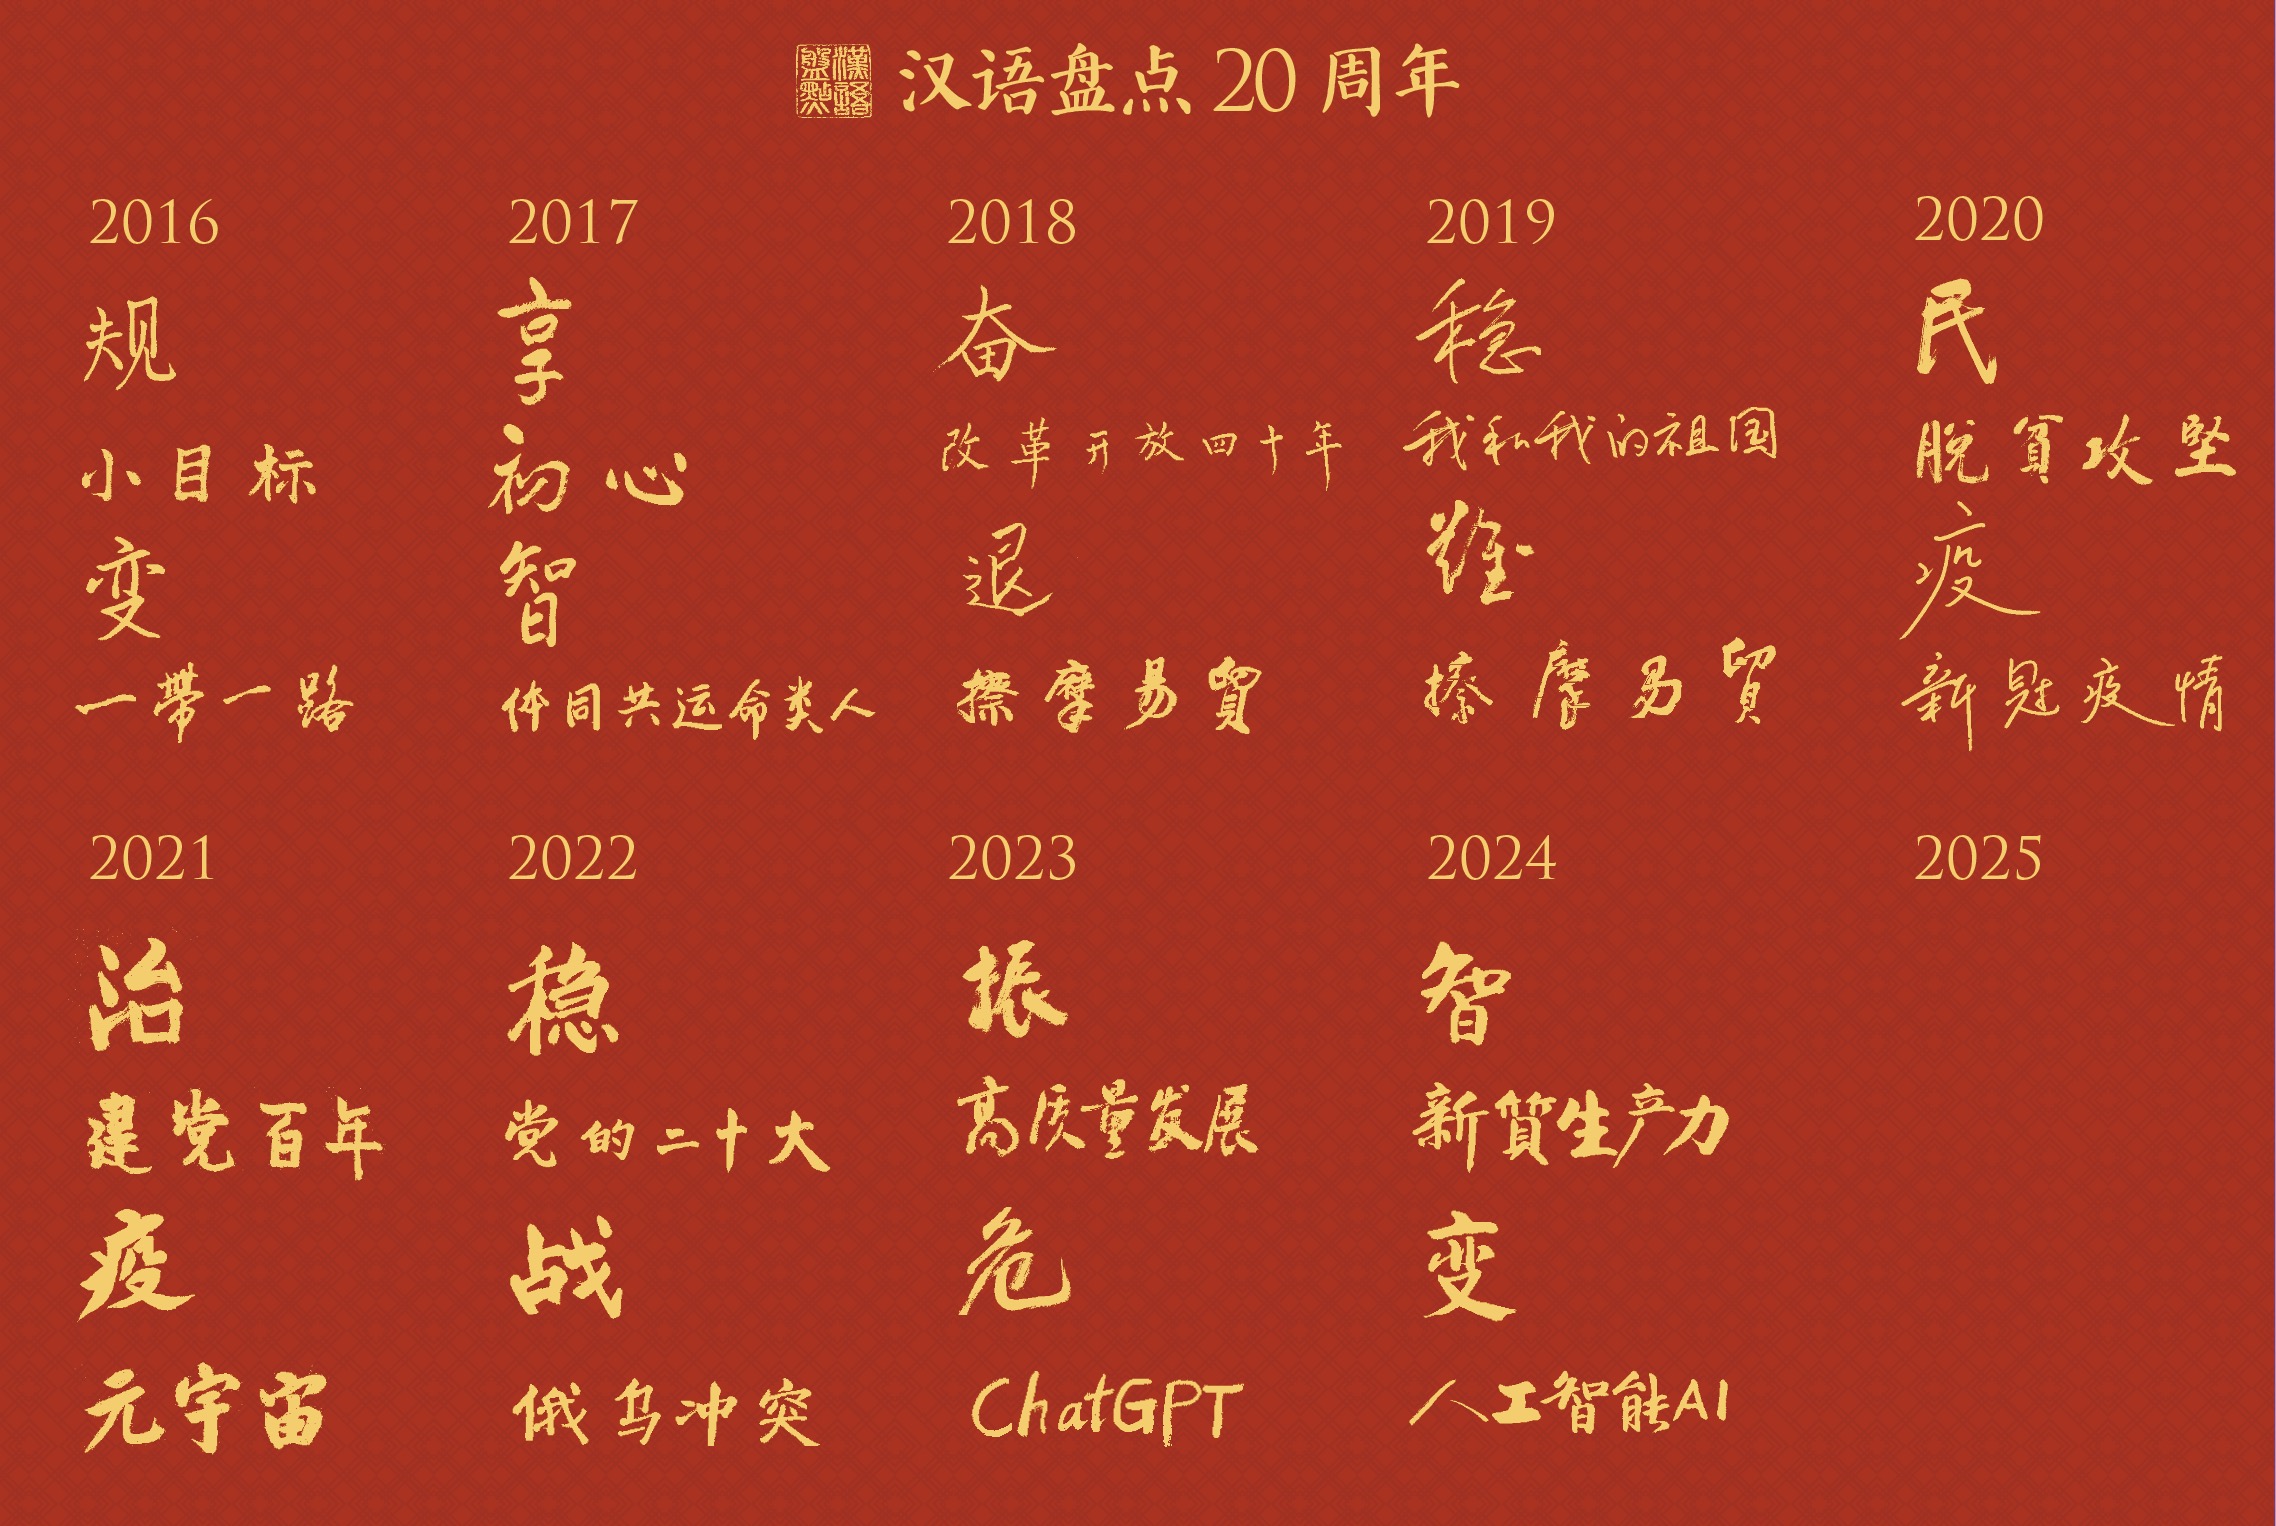 漢語盤點
汉语盘点20周年
2016
规
小目标
变
一帶一路
2017
享
初心
智
体同共运命类人
2018
奋
改革开放四十年
退
擦摩易貿
2019
稳
我和我的祖国
难
擦摩易貿
2020
民
脱貧攻坚
疫
新冠疫情
2021
治
建党百年
疫
元宇宙
2022
稳
党的二十大
战
俄乌冲突
2023
振
高质量发展
危
ChatGPT
2024
智
新質生产力
变
人工智能AI
2025